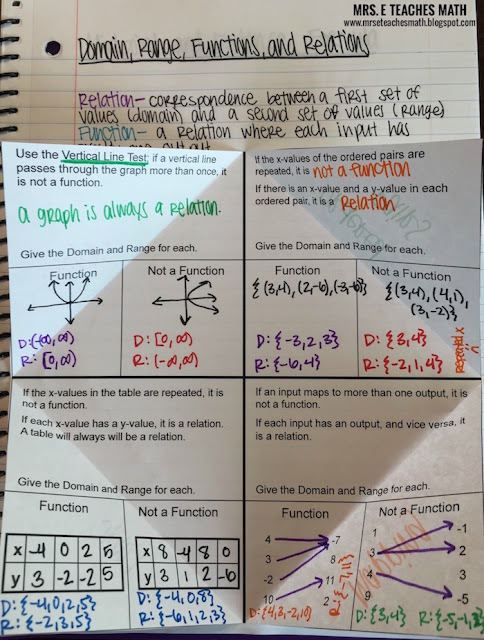 MRS. E TEACHES MATH
www.mrseteachesmath.blogspot.com
Domain, Range, Functions, and Relations
Relation- correspondence between a first set of
values (domain) and a second set of values (Range)
Function- a Relation where each input has
Use the Vertical Line Test; if a vertical line
passes through the graph more than once, it
is not a function.
a graph is always a relation.
Give the Domain and Range for each.
Function
Not a Function
D: (-∞, ∞)
R: [0, ∞)
D: [0, ∞)
R: (-∞, ∞)
If the x-values of the ordered pairs are
repeated, it is not a function
If there is an x-value and a y-value in each
ordered pair, it is a Relation
Give the Domain and Range for each.
Function
Not a Function
{(3,4), (2,-6), (-3,-6)}
{(3,4), (4,1),
(3,-2)}
D: {-3,2,3}
R: {-6,4}
D: {3,4}
R: {-2,1,4}
repeated x
If the x-values in the table are repeated, it is
not a function.
If each x-value has a y-value, it is a relation.
A table will always will be a relation.
Give the Domain and Range for each.
Function
Not a Function
x -4 0 2 5
y 3 -2 -2 5
x 8 -4 8 0
y 3 1 2 -6
D: {-4,0,2,5}
R: {-2,3,5}
D: {-4,0,8}
R: {-6,1,2,3}
If an input maps to more than one output, it is
not a function.
If each input has an output, and vice versa, it
is a relation.
Give the Domain and Range for each.
Function
Not a Function
4 -7
3 8
-2 11
10 2
D: {4,3,-2,10}
R: {-7,11}
1 -1
3 2
4 3
9 -5
D: {3,4}